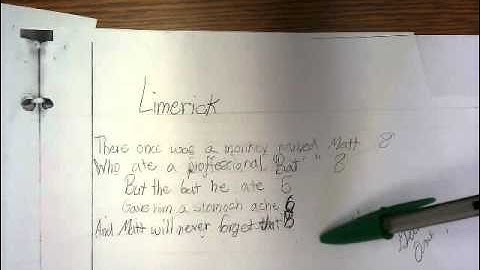 Limerick
There once was a monkey named Matt 8
Who ate a proffessional "Bat" 8
But the bat he ate 5
Gave him a stomach ache 6
And Matt will never forget that 8